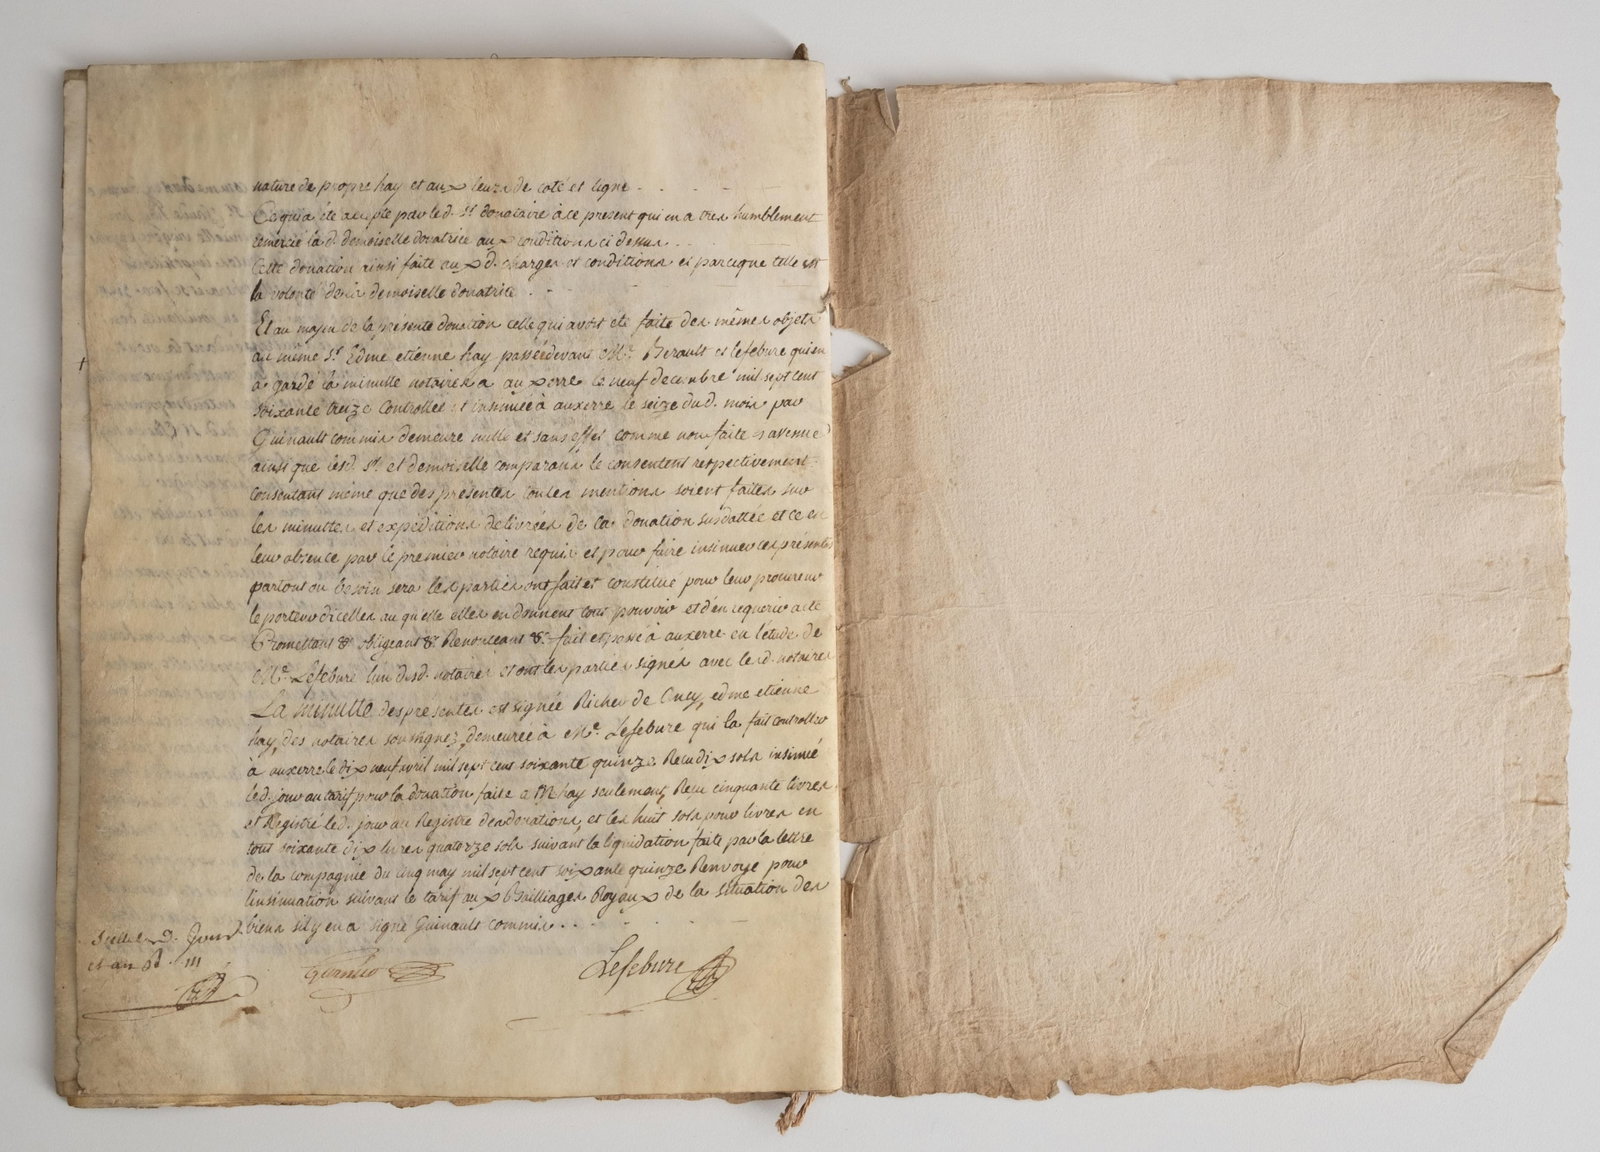 nature de propre hay et aux leurs de coté et ligne
Ce qui a été accepté par led. Sr. donataire à ce present qui en a tres humblement
remercié lad. demoiselle donatrice aux conditions ci dessus
Cette donation ainsi faite auxd. charges et conditions et parceque telle est
la volonté de la demoiselle donatrice
Et au moyen de la présente donation celle qui avoit été faite des mêmes objets
au même Sr. Edme etienne hay passée devant Me. Herault et lefebure qui en
a gardé la minutte notaires a auxerre le neuf decembre mil sept cent
soixante treize Controllée et insinuée à auxerre le seize dud. mois par
Guinault commis demeure nulle et sans effet comme non faite n avenue
ainsi que lesd. Sr. et demoiselle comparans le consentent respectivement
Consentans même que des presentes toutes mentions soient faites sur
les minuttes et expéditions délivrées de la donation susdattée et ce en
leur absence par le premier notaire requis et pour faire insinuer ces présentes
partout ou besoin sera les parties ont fait et constitué pour leur procureur
le porteur dicelles au quelle elles en donnent tout pouvoir et d'en requerir acte
Promettans &c. obligeans &c. Renonceans &c. fait et passé à auxerre en l'étude de
Me. Lefebure l'un desd. notaires et ont les parties signés avec lesd. notaires
La minutte des presentes est signée Richer de Cucy, edme etienne
hay, des notaires soussignez, demeurée à Me. Lefebure qui la fait controller
à auxerre le dix neuf avril mil sept cent soixante quinze Recu dix sols insinué
led. jour au tarif pour la donation faite a M hay seulement, Recu cinquante livres
et Registré led. jour au Registre des donations, et les huit sols pour livres en
tout soixante dix livres quatorze sols suivant la liquidation faite par la lettre
de la compagnie du cinq may mil sept cent soixante quinze Renvoyé pour
l'insinuation suivant le tarif aux Bailliages Royaux de la situation des
biens s'il y en a signé Guinault commis
Scellé led. Jour
et an
Lefebure